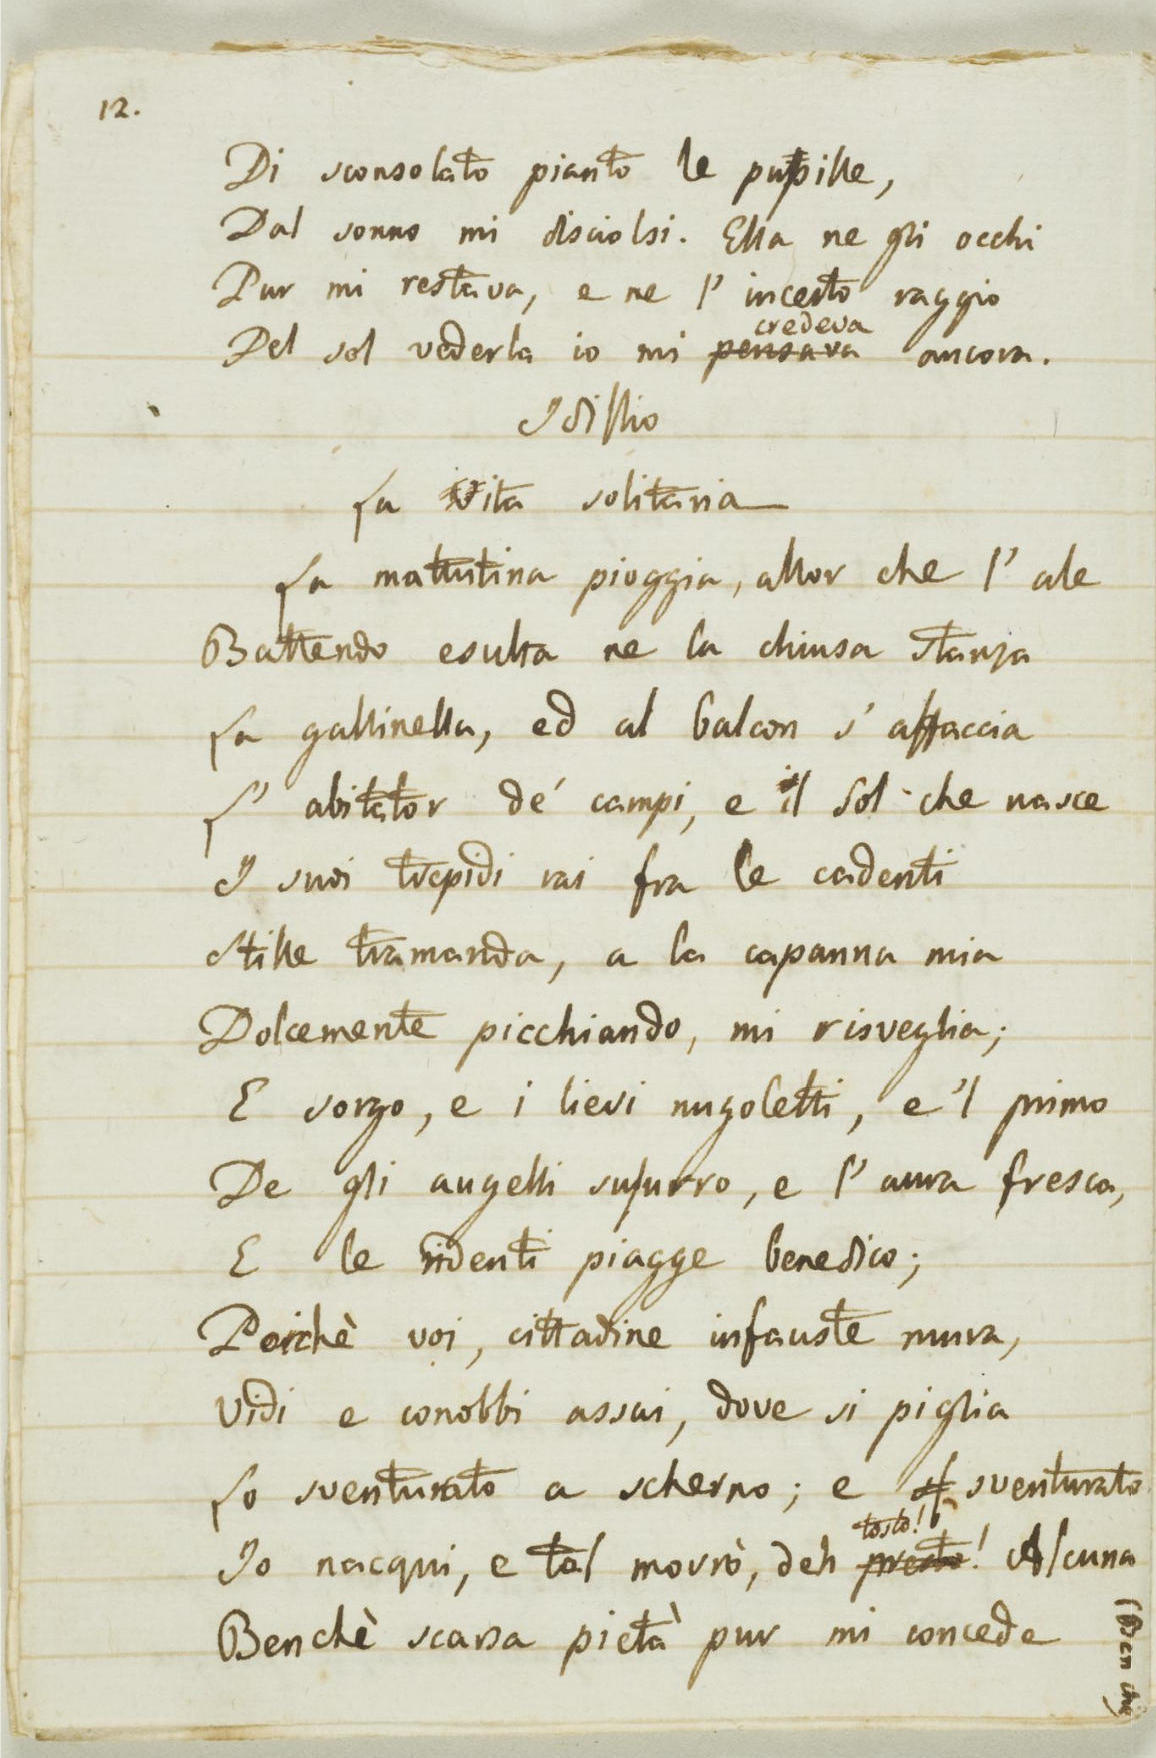 12.
Di sconsolato pianto le pupille,
Dal sonno mi disciolsi. Ella ne gli occhi
Pur mi restava, e ne l' incerto raggio
credeva
Del sol vederla io mi pensava ancora.
Idillio
La Vita solitaria
La mattutina pioggia, allor che l' ale
Battendo esulta ne la chiusa stanza
La gallinella, ed al balcon s' affaccia
L' abitator de' campi, e il Sol che nasce
I suoi trepidi rai fra le cadenti
Stille tramanda, a la capanna mia
Dolcemente picchiando, mi risveglia;
E sorgo, e i lievi nugoletti, e 'l primo
De gli augelli susurro, e l' aura fresca,
E le ridenti piagge benedico;
Poichè voi, cittadine infauste mura,
Vidi e conobbi assai, dove si piglia
Lo sventurato a scherno; e sventurato
tosto!
Io nacqui, e tal morrò, deh presto! Alcuna
Benchè scarsa pietà pur mi concede
(Ben che